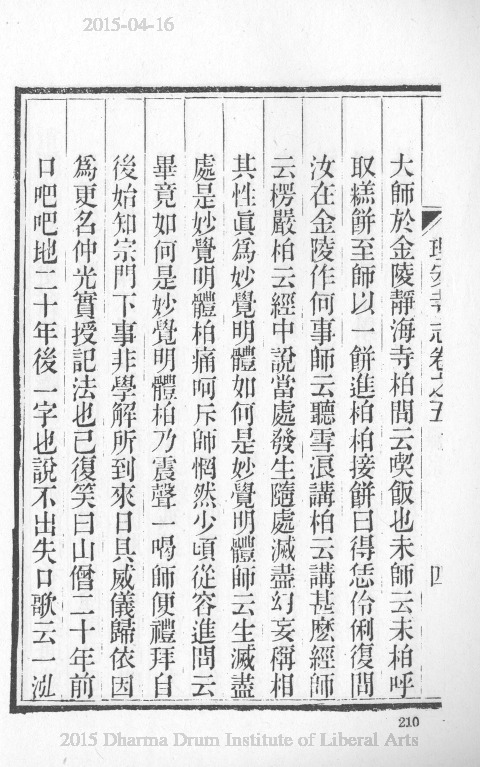 2015-04-16
理安寺志卷之五
四
大師於金陵靜海寺柏問云喫飯也未師云未柏呼
取糕餅至師以一餅進柏柏接餅曰得恁伶俐復問
汝在金陵作何事師云聽雪浪講柏云講甚麽經師
云楞嚴柏云經中說當處發生隨處滅盡幻妄稱相
其性眞爲妙覺明體如何是妙覺明體師云生滅盡
處是妙覺明體柏痛呵斥師惘然少頃從容進問云
畢竟如何是妙覺明體柏乃震聲一喝師便禮拜自
後始知宗門下事非學解所到來日具威儀歸依因
爲更名仲光實授記法也已復笑曰山僧二十年前
口吧吧地二十年後一字也說不出失口歌云一泓
210
2015 Dharma Drum Institute of Liberal Arts